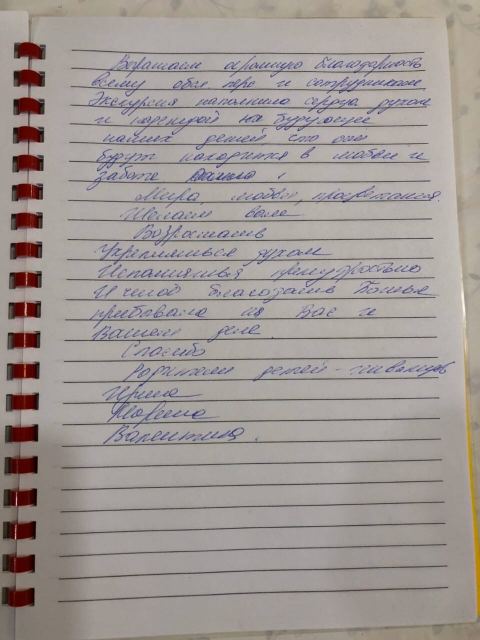 Выражаем огромную благодарность
всему обл. и сотрудникам
Экскурсия наполнила сердца духом
и надеждой на будущее
наших детей что они
будут находится в любви и
заботе
Мира, любви, процветания.
Желаем вам
Возрастать
Укрепляться духом
Исполняться премудростью
И чтоб благодать Божья
пребывала на Вас и
Вашем деле.
Спасибо
Родители детей - инвалидов
Ирина
Марина
Валентина.